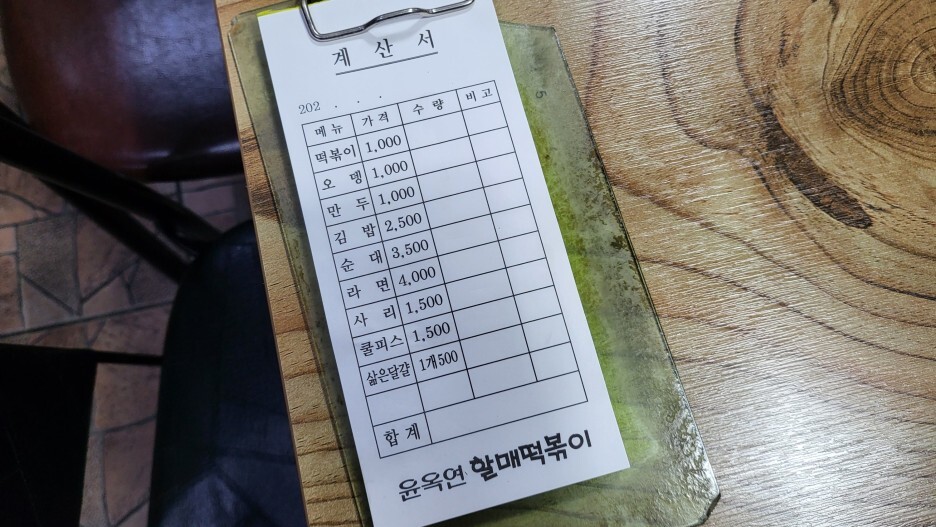 계 산 서
202 . . .
메뉴 가격 수량 비고
떡볶이 1,000
오 뎅 1,000
만 두 1,000
김 밥 2,500
순 대 3,500
라 면 4,000
사 리 1,500
쿨피스 1,500
삶은달걀 1개500
합 계
윤옥연 할매떡볶이